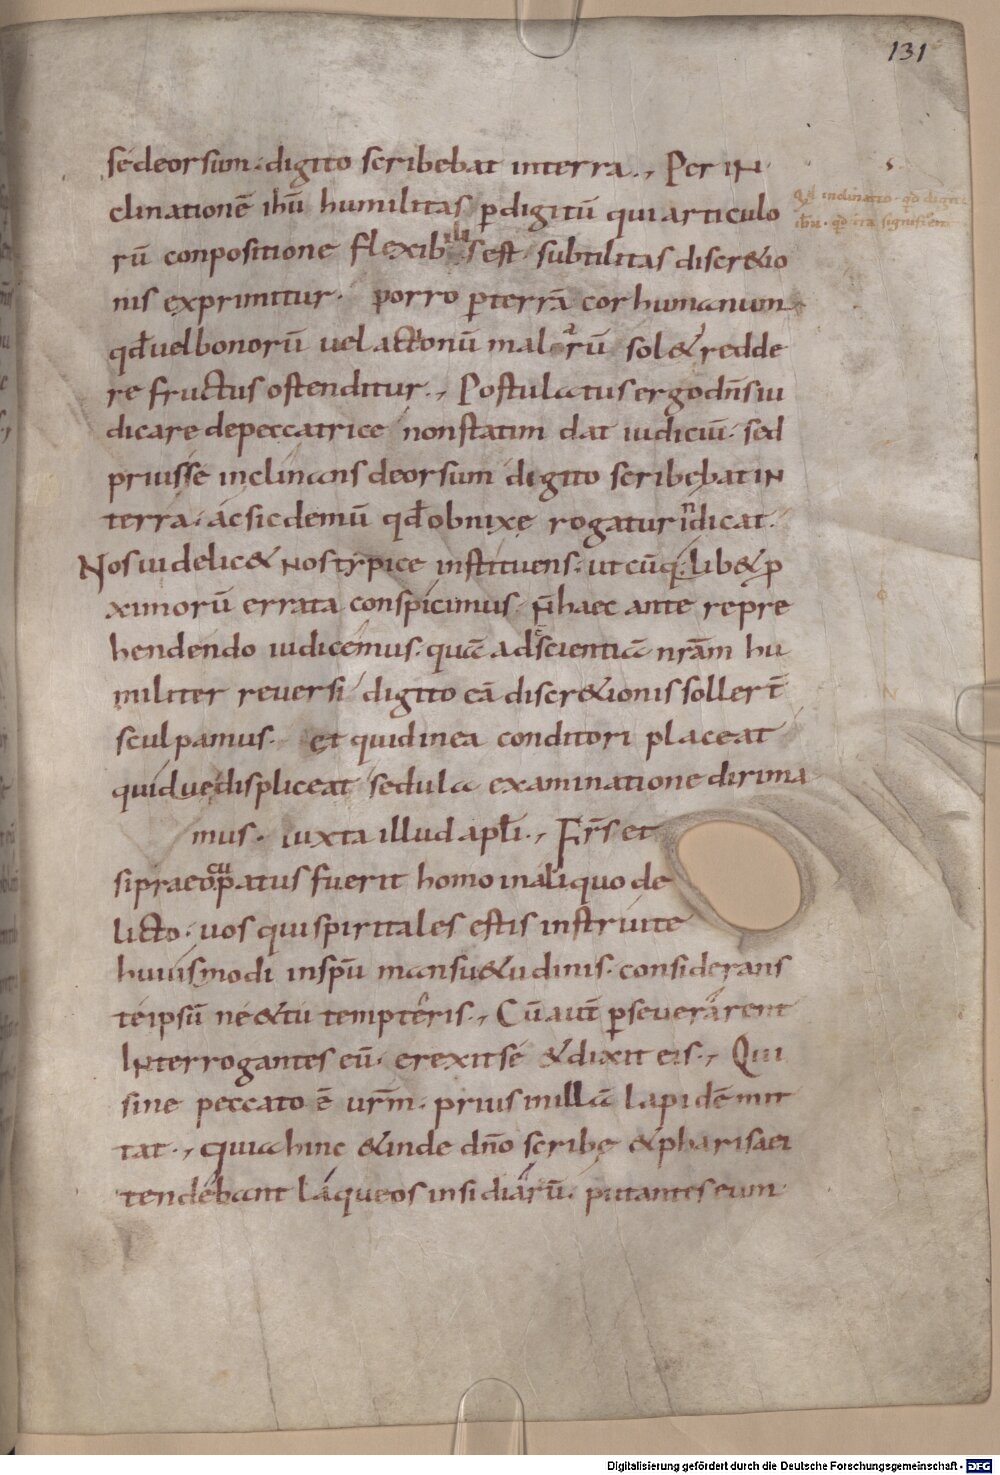 131
se deorsum · digito scribebat interra ., Per in
clinationē ihū humilitas p̱ digitū qui articulo
rū conpositione flexibilis est · subtilitas discr&io
nis exprimitur · porro p̱ terrā cor humanum
qđ uel bonorū uel actionū malorū sol& redde
re fructus ostenditur ., Postulatus ergo dn̄s iu
dicare depeccatrice non statim dat iudiciū · sed
prius se inclinans deorsum digito scribebat in
terra · ac sic demū qđ obnixę rogatur iudicat ·
Nos uidelic& nos typice instituens · ut cūq; lib& p
ximorū errata conspicimus · n̄ haec ante repre
hendendo iudicemus · quā ad scientiā nr̄am hu
militer reuersi digito eā discr&ionis sollert̄
sculpamus · et quid in ea conditori placeat
quid ue displiceat sedula examinatione dirima
mus · iuxta illud apłi ., Fr̄s et
si praeoccupatus fuerit homo in aliquo de
licto · uos qui spiritales estis instruite
huiusmodi in sp̄u mansu&udinis · considerans
te ipsū ne & tu tempteris ., Cū aut̄ p̱seuerarent
Interrogantes eū · erexit se & dixit eis ., Qui
sine peccato ē ur̄m · prius in illā lapidē mit
tat ., quia hinc & inde dn̄o scribę & pharisaei
tendebant laqueos insidiarū · putantes eum
Digitalisierung gefördert durch die Deutsche Forschungsgemeinschaft - DFG